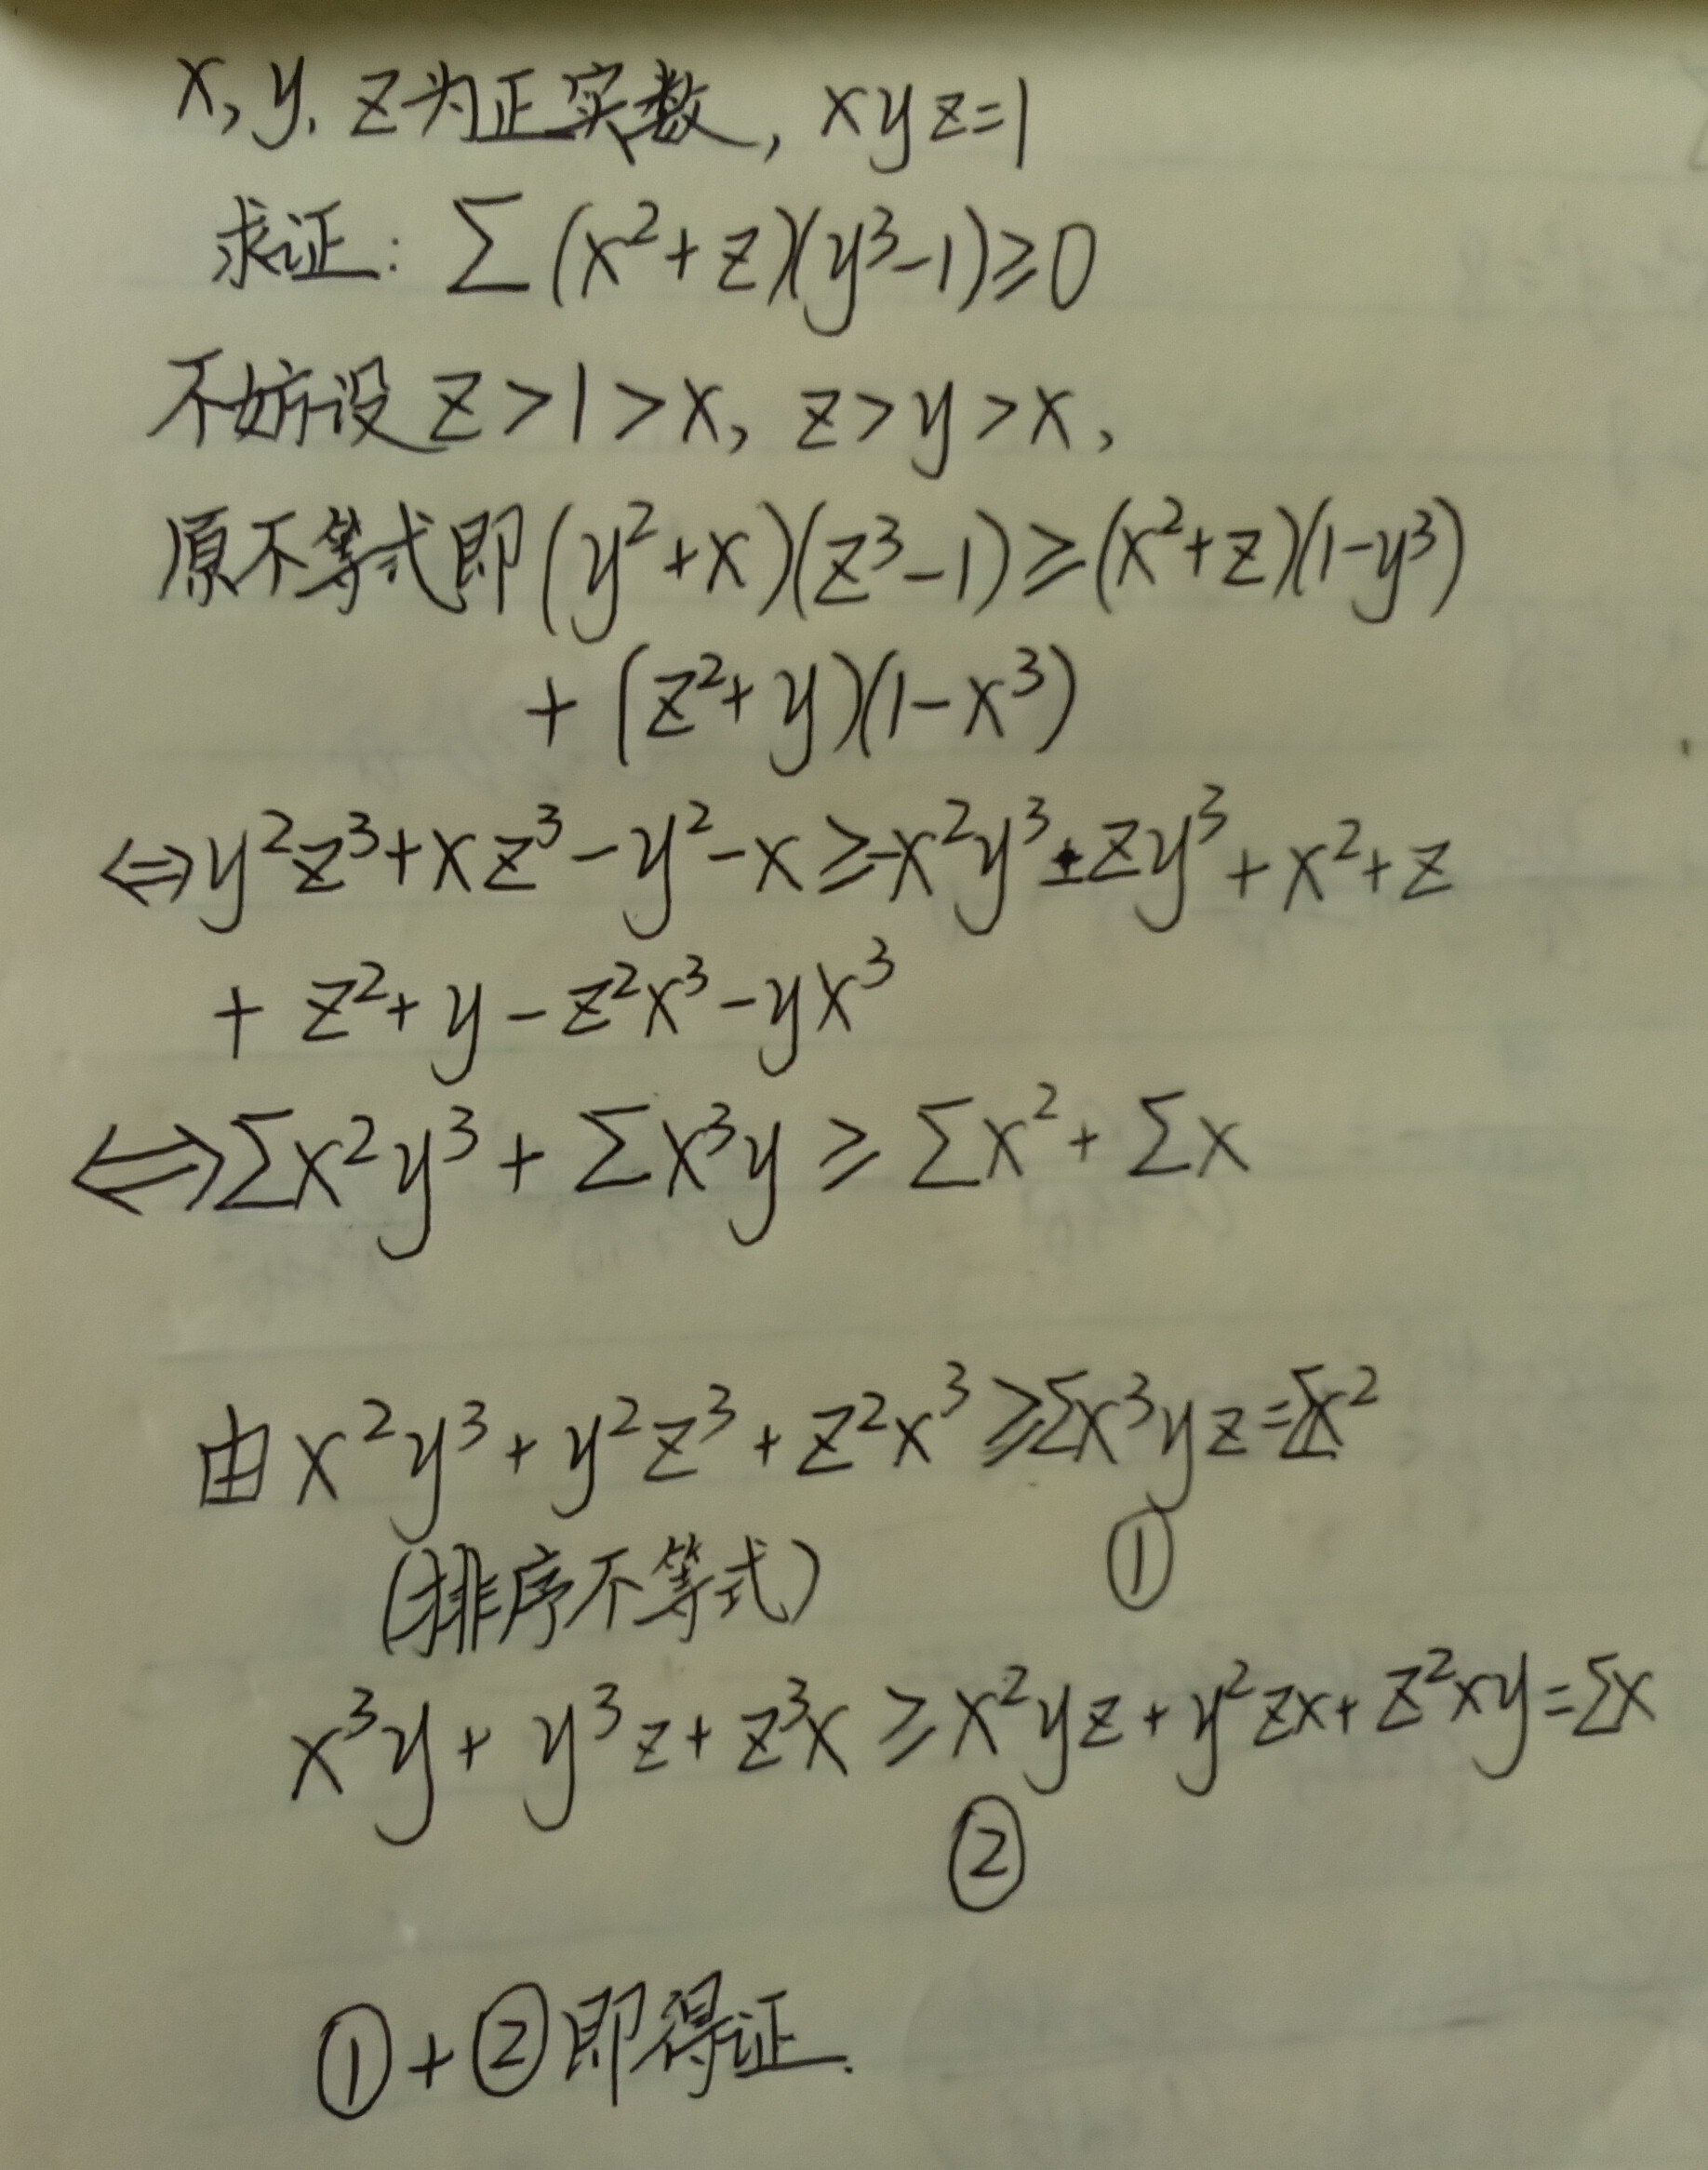 x, y, z为正实数, xyz=1
求证: ∑(x²+z)(y³-1)≥0
不妨设 z>1>x, z>y>x,
原不等式即(y²+x)(z³-1)≥(x²+z)(1-y³)
+(z²+y)(1-x³)
⇔y²z³+xz³-y²-x≥-x²y³-zy³+x²+z
+z²+y-z²x³-yx³
⇔∑x²y³+∑x³y≥∑x²+∑x
由x²y³+y²z³+z²x³≥∑x³yz=∑x²
(排序不等式) ①
x³y+y³z+z³x≥x²yz+y²zx+z²xy=∑x
②
①+②即得证.